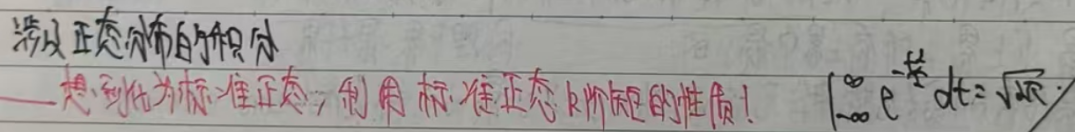 涉及正态分布的积分
—— 想到化为标准正态,利用标准正态k阶矩的性质! ∫_{-∞}^{∞} e^{-t²/2} dt = √2π.